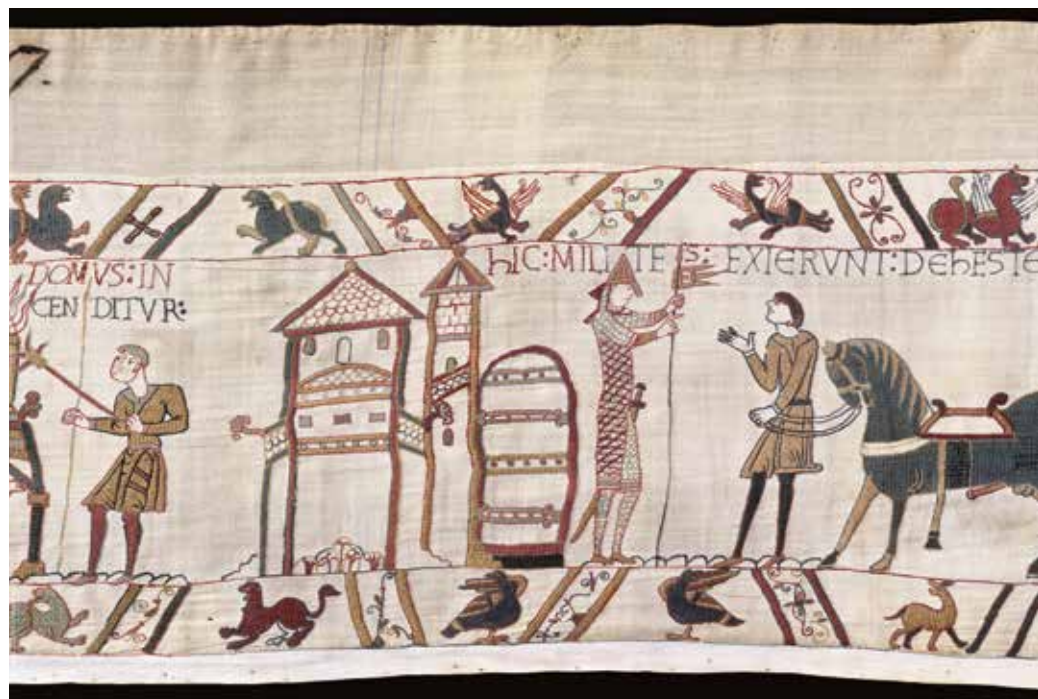 DOMVS:IN
CENDITVR:
hIC:MILITES:EXIERVNT:DEhESTE